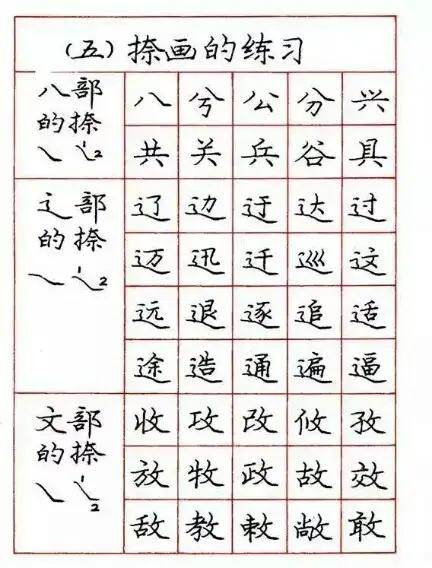 （五）捺画的练习
八部
的捺
1 2
八 兮 公 分 兴
共 关 兵 谷 具
辶部
的捺
1 2
辽 边 迂 达 过
迈 迅 迁 巡 这
远 退 逐 追 适
途 造 通 遍 逼
文部
的捺
1 2
收 攻 改 攸 孜
放 牧 政 故 效
敌 教 敕 敞 敢